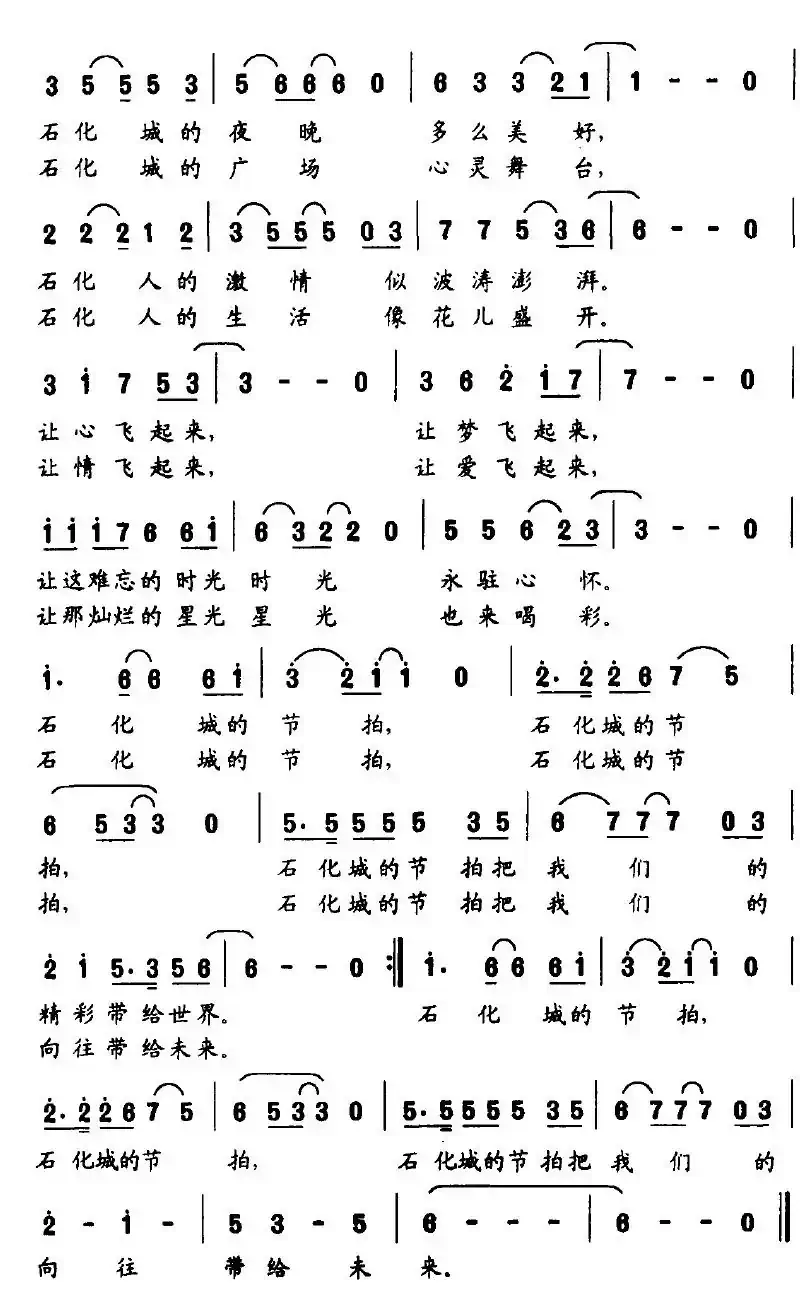 3 5 5 5 3 | 5 6 6 6 0 | 6 3 3 2 1 | 1 - - 0
石化 城的夜晚 多么美好,
石化 城的广场 心灵舞台,
2 2 2 1 2 | 3 5 5 5 0 3 | 7 7 5 3 6 | 6 - - 0
石化 人的激情 似波涛澎湃。
石化 人的生活 像花儿盛开。
3 i 7 5 3 | 3 - - 0 | 3 6 2 i 7 | 7 - - 0
让心飞起来, 让梦飞起来,
让情飞起来, 让爱飞起来,
i i i 7 6 6 i | 6 3 2 2 0 | 5 5 6 2 3 | 3 - - 0
让这难忘的时光时光 永驻心怀。
让那灿烂的星光星光 也来喝彩。
i. 6 6 6 i | 3 2 i i 0 | 2. 2 2 6 7 5 |
石化 城的节拍, 石化城的节
石化 城的节拍, 石化城的节
6 5 3 3 0 | 5. 5 5 5 5 3 5 | 6 7 7 7 0 3 |
拍, 石化城的节拍把我们的
拍, 石化城的节拍把我们的
2 i 5. 3 5 6 | 6 - - 0 :| i. 6 6 6 i | 3 2 i i 0 |
精彩带给世界。 石化 城的节拍,
向往带给未来。
2. 2 2 6 7 5 | 6 5 3 3 0 | 5. 5 5 5 5 3 5 | 6 7 7 7 0 3 |
石化城的节 拍, 石化城的节拍把我们的
2 - i - | 5 3 - 5 | 6 - - - | 6 - - 0 ‖
向往 带给未来。